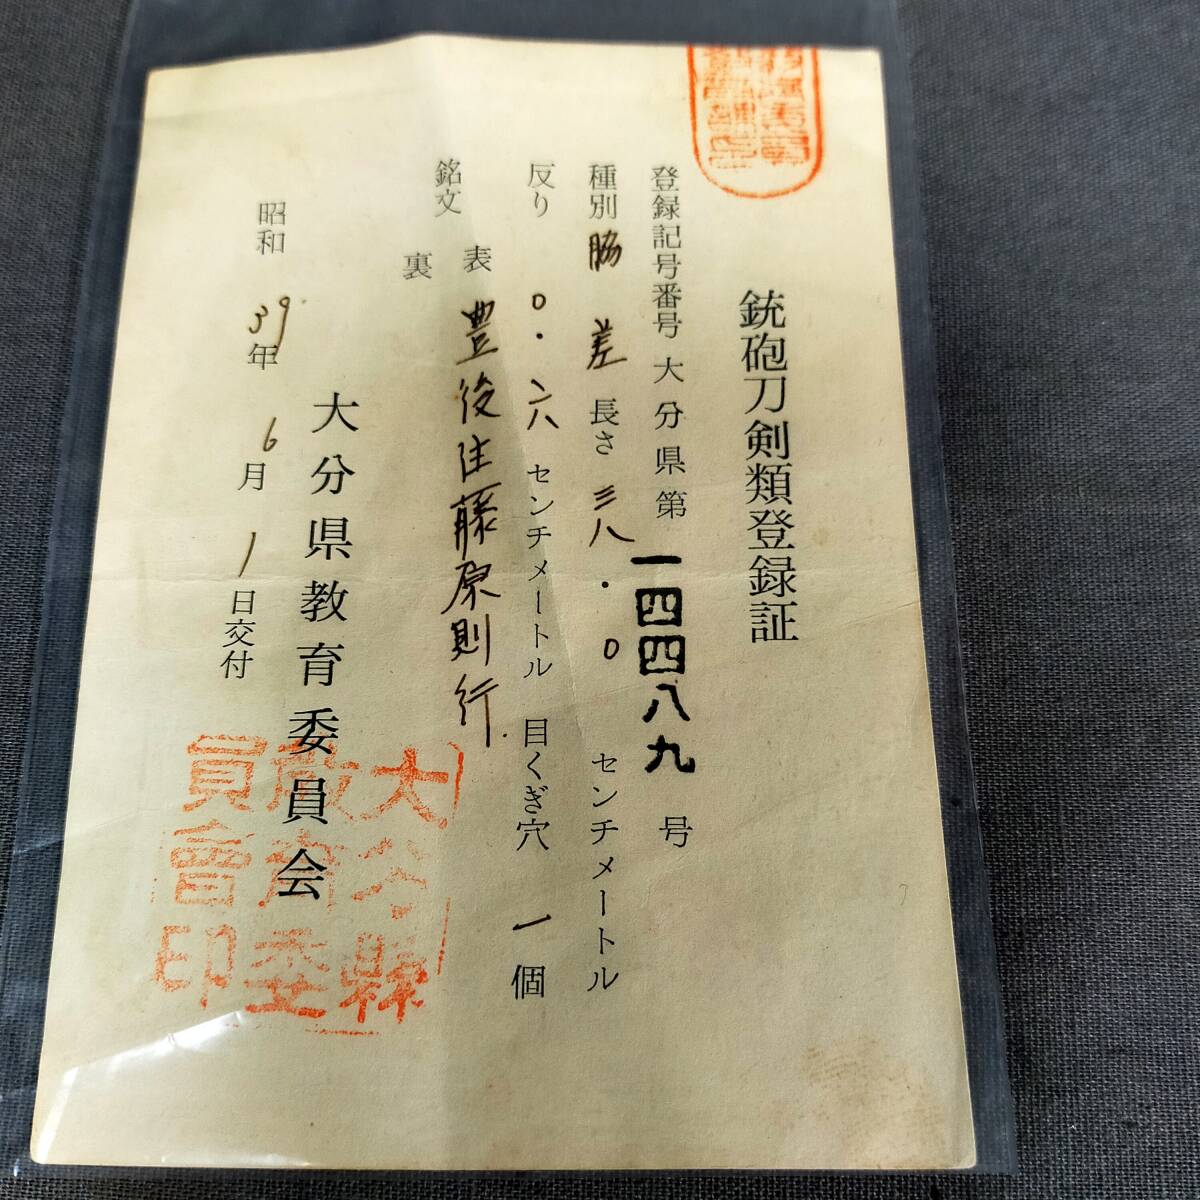 銃砲刀剣類登録証
登録記号番号 大分県第 一四四八九 号
種別 脇差 長さ 三八.〇 センチメートル
反り 〇.六 センチメートル 目くぎ穴 一 個
銘文 表 豊後住藤原則行
裏
昭和 39年 6月 1日交付
大分県教育委員会
大分縣
教育委
員會印